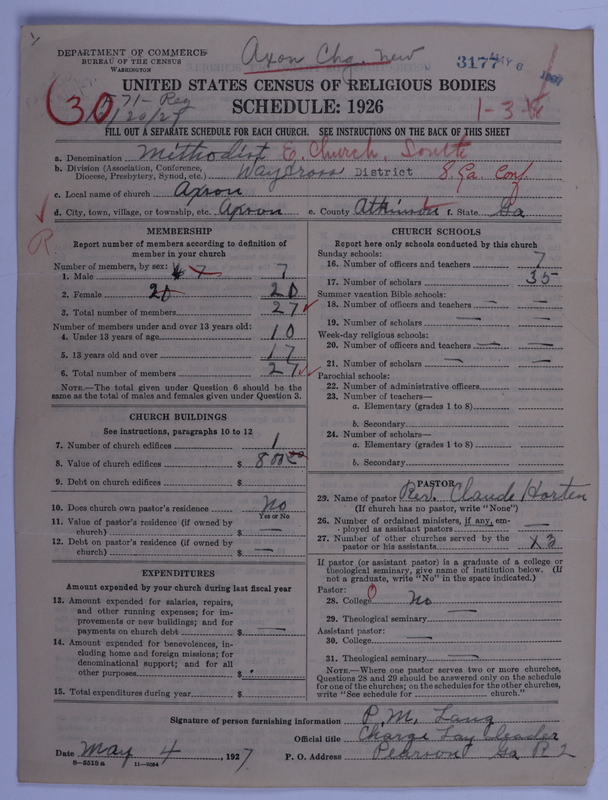 DEPARTMENT OF COMMERCE
BUREAU OF THE CENSUS
WASHINGTON
Axon Chg. New
3177
UNITED STATES CENSUS OF RELIGIOUS BODIES
SCHEDULE: 1926
30
1-3
FILL OUT A SEPARATE SCHEDULE FOR EACH CHURCH. SEE INSTRUCTIONS ON THE BACK OF THIS SHEET
a. Denomination Methodist E. Church, South
b. Division (Association, Conference, Diocese, Presbytery, Synod, etc.) Waycross District S. Ga. Conf
c. Local name of church Axson
d. City, town, village, or township, etc. Axson e. County Atkinson f. State Ga
R
MEMBERSHIP
Report number of members according to definition of
member in your church
Number of members, by sex:
1. Male 7 7
2. Female 20 20
3. Total number of members 27
Number of members under and over 13 years old:
4. Under 13 years of age 10
5. 13 years old and over 17
6. Total number of members 27
NOTE.—The total given under Question 6 should be the
same as the total of males and females given under Question 3.
CHURCH BUILDINGS
See instructions, paragraphs 10 to 12
7. Number of church edifices 1
8. Value of church edifices $ 800 00
9. Debt on church edifices $
10. Does church own pastor's residence? No
Yes or No
11. Value of pastor's residence (if owned by
church) $ —
12. Debt on pastor's residence (if owned by
church) $ —
EXPENDITURES
Amount expended by your church during last fiscal year
13. Amount expended for salaries, repairs,
and other running expenses; for im-
provements or new buildings; and for
payments on church debt $ —
14. Amount expended for benevolences, in-
cluding home and foreign missions; for
denominational support; and for all
other purposes $
15. Total expenditures during year $
CHURCH SCHOOLS
Report here only schools conducted by this church
Sunday schools:
16. Number of officers and teachers 7
17. Number of scholars 35
Summer vacation Bible schools:
18. Number of officers and teachers — —
19. Number of scholars — —
Week-day religious schools:
20. Number of officers and teachers — —
21. Number of scholars — —
Parochial schools:
22. Number of administrative officers
23. Number of teachers—
a. Elementary (grades 1 to 8)
b. Secondary
24. Number of scholars—
a. Elementary (grades 1 to 8)
b. Secondary
PASTOR
25. Name of pastor Rev. Claude Horten
(If church has no pastor, write "None")
26. Number of ordained ministers, if any, em-
ployed as assistant pastors —
27. Number of other churches served by the
pastor or his assistants x3
If pastor (or assistant pastor) is a graduate of a college or
theological seminary, give name of institution below. (If
not a graduate, write "No" in the space indicated.)
Pastor:
28. College No
29. Theological seminary —
Assistant pastor:
30. College —
31. Theological seminary —
NOTE.—Where one pastor serves two or more churches,
Questions 28 and 29 should be answered only on the schedule
for one of the churches; on the schedules for the other churches,
write "See schedule for church."
Signature of person furnishing information P. M. Lang
Official title Charge Lay Leader
Date May 4, 1927 P. O. Address Pearson Ga R 2
8-5518a 11-9084